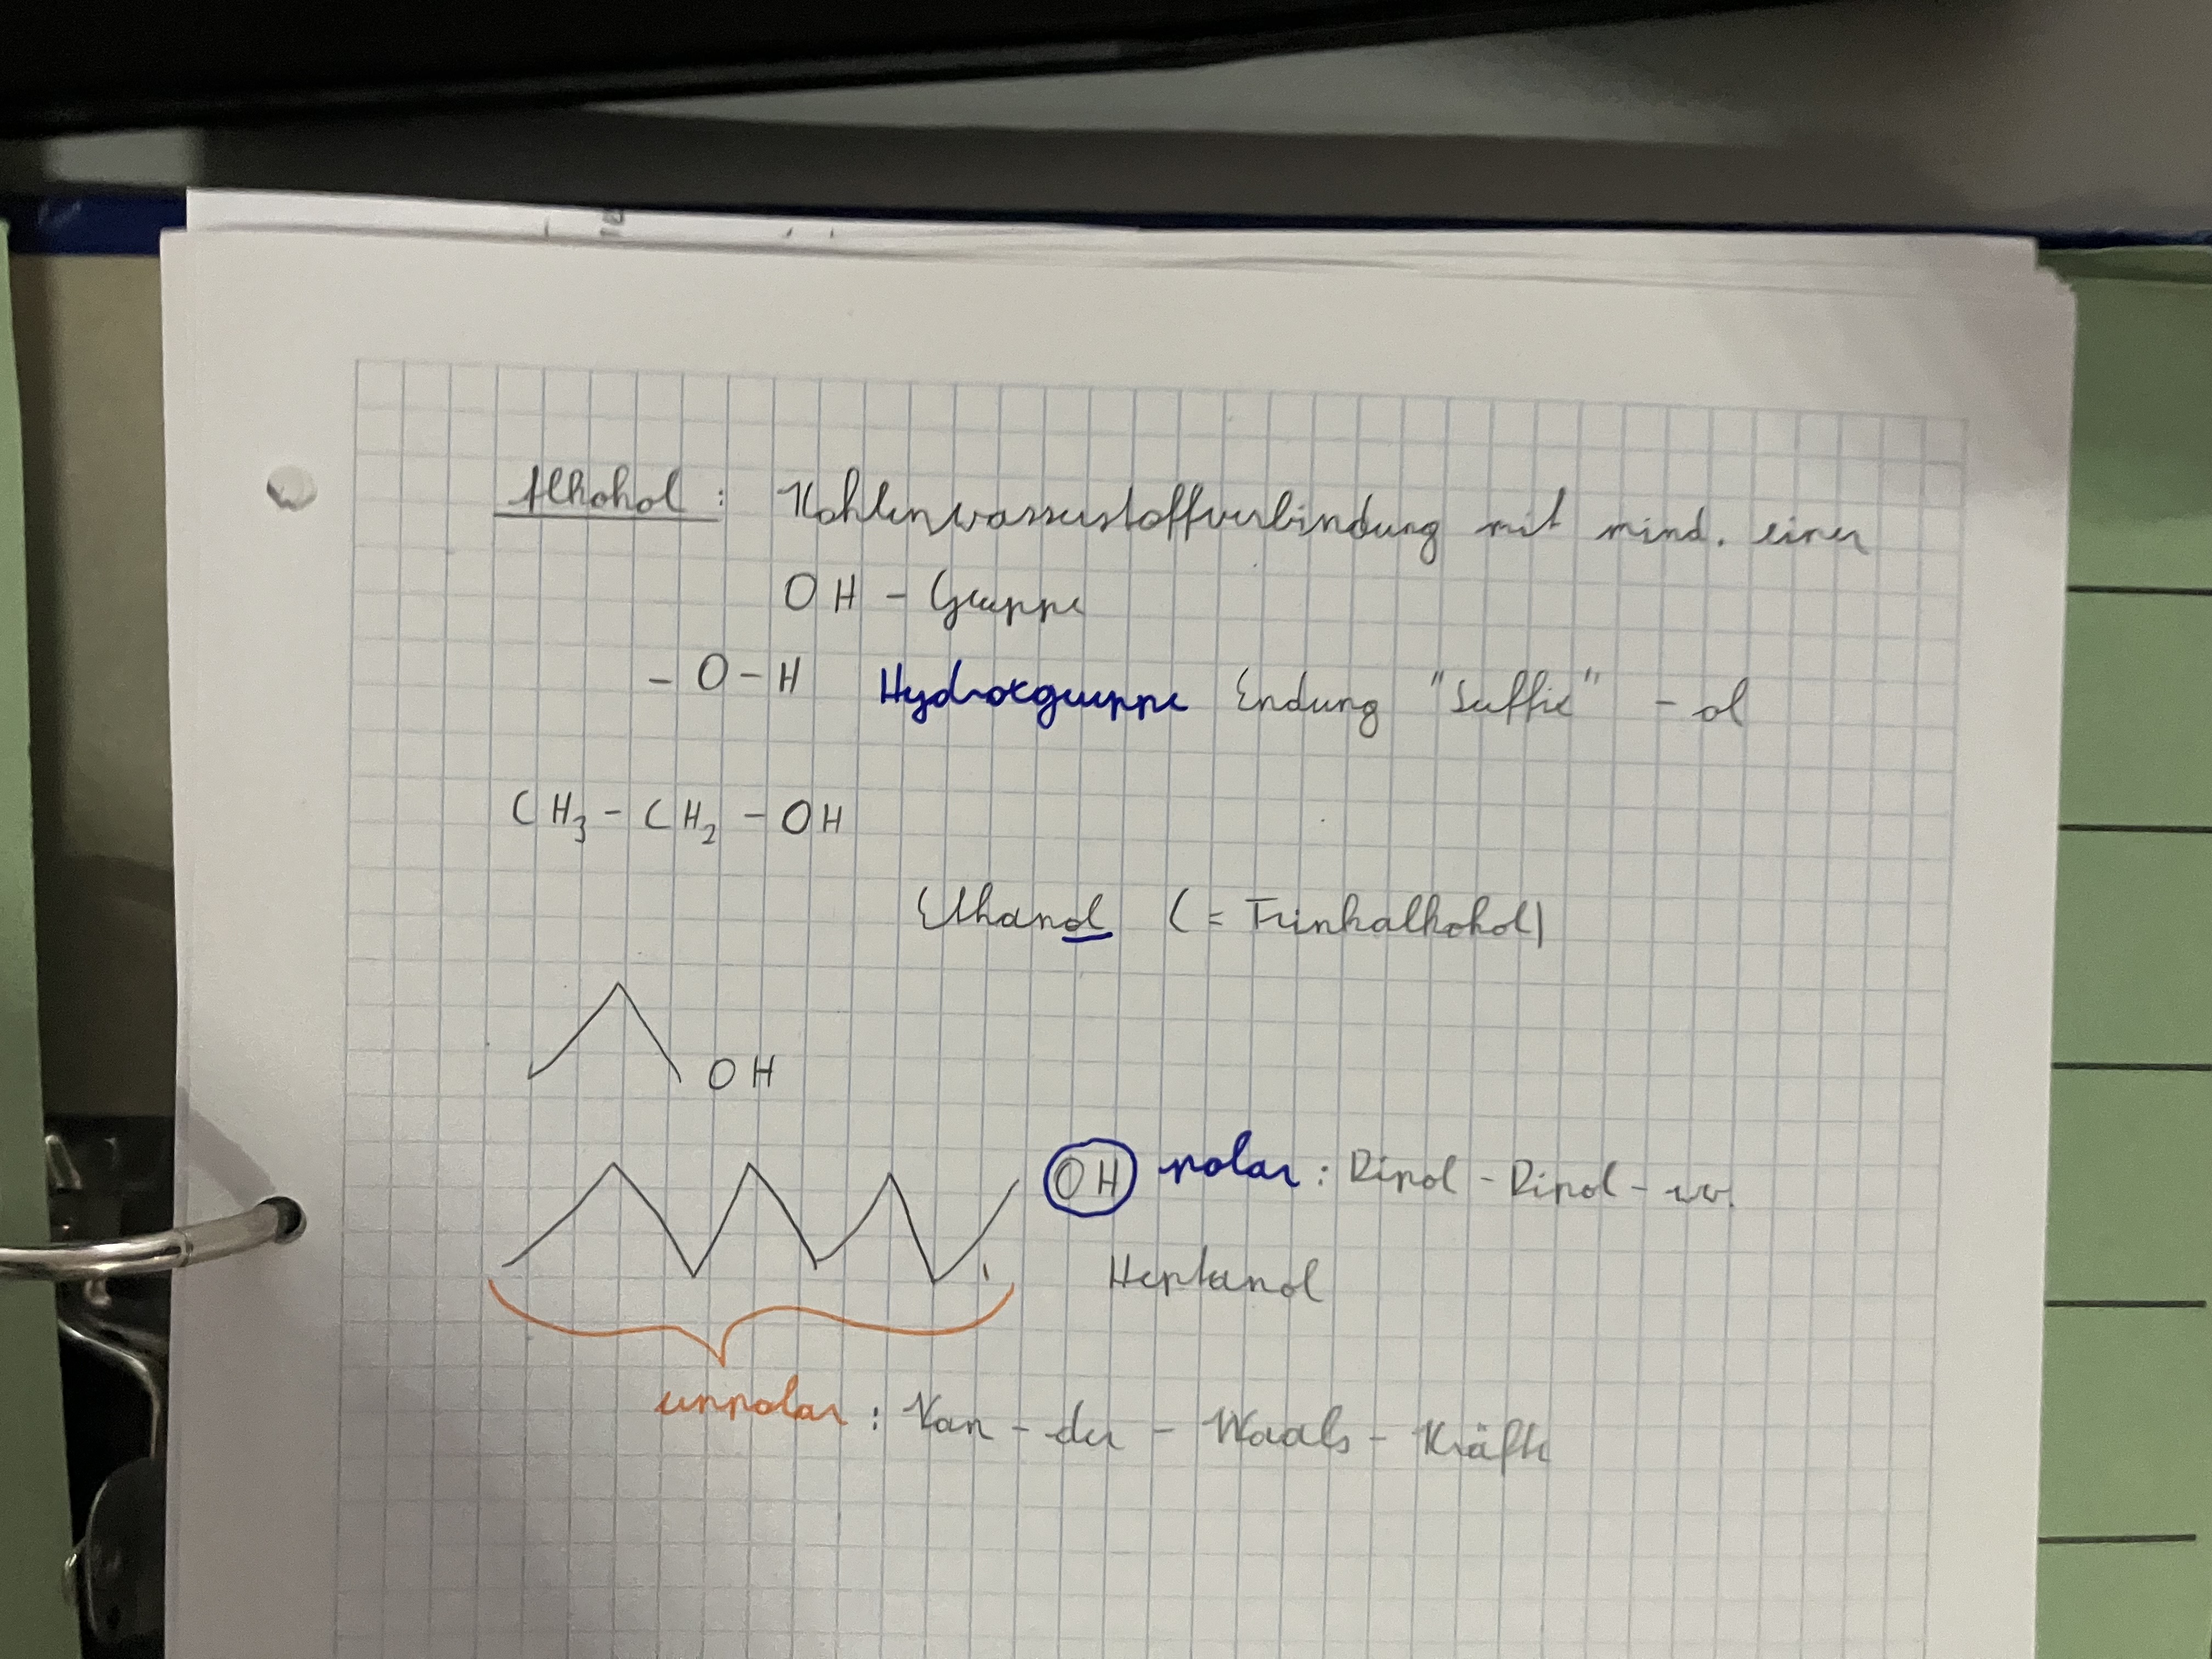 Alkohol: Kohlenwasserstoffverbindung mit mind. einer
OH - Gruppe
- O - H Hydroxgruppe Endung "Suffix" - ol
CH3 - CH2 - OH
Ethanol (= Trinkalkohol)
OH
OH polar: Dipol - Dipol - w.
Heptanol
unpolar: Van - der - Waals - Kräfte